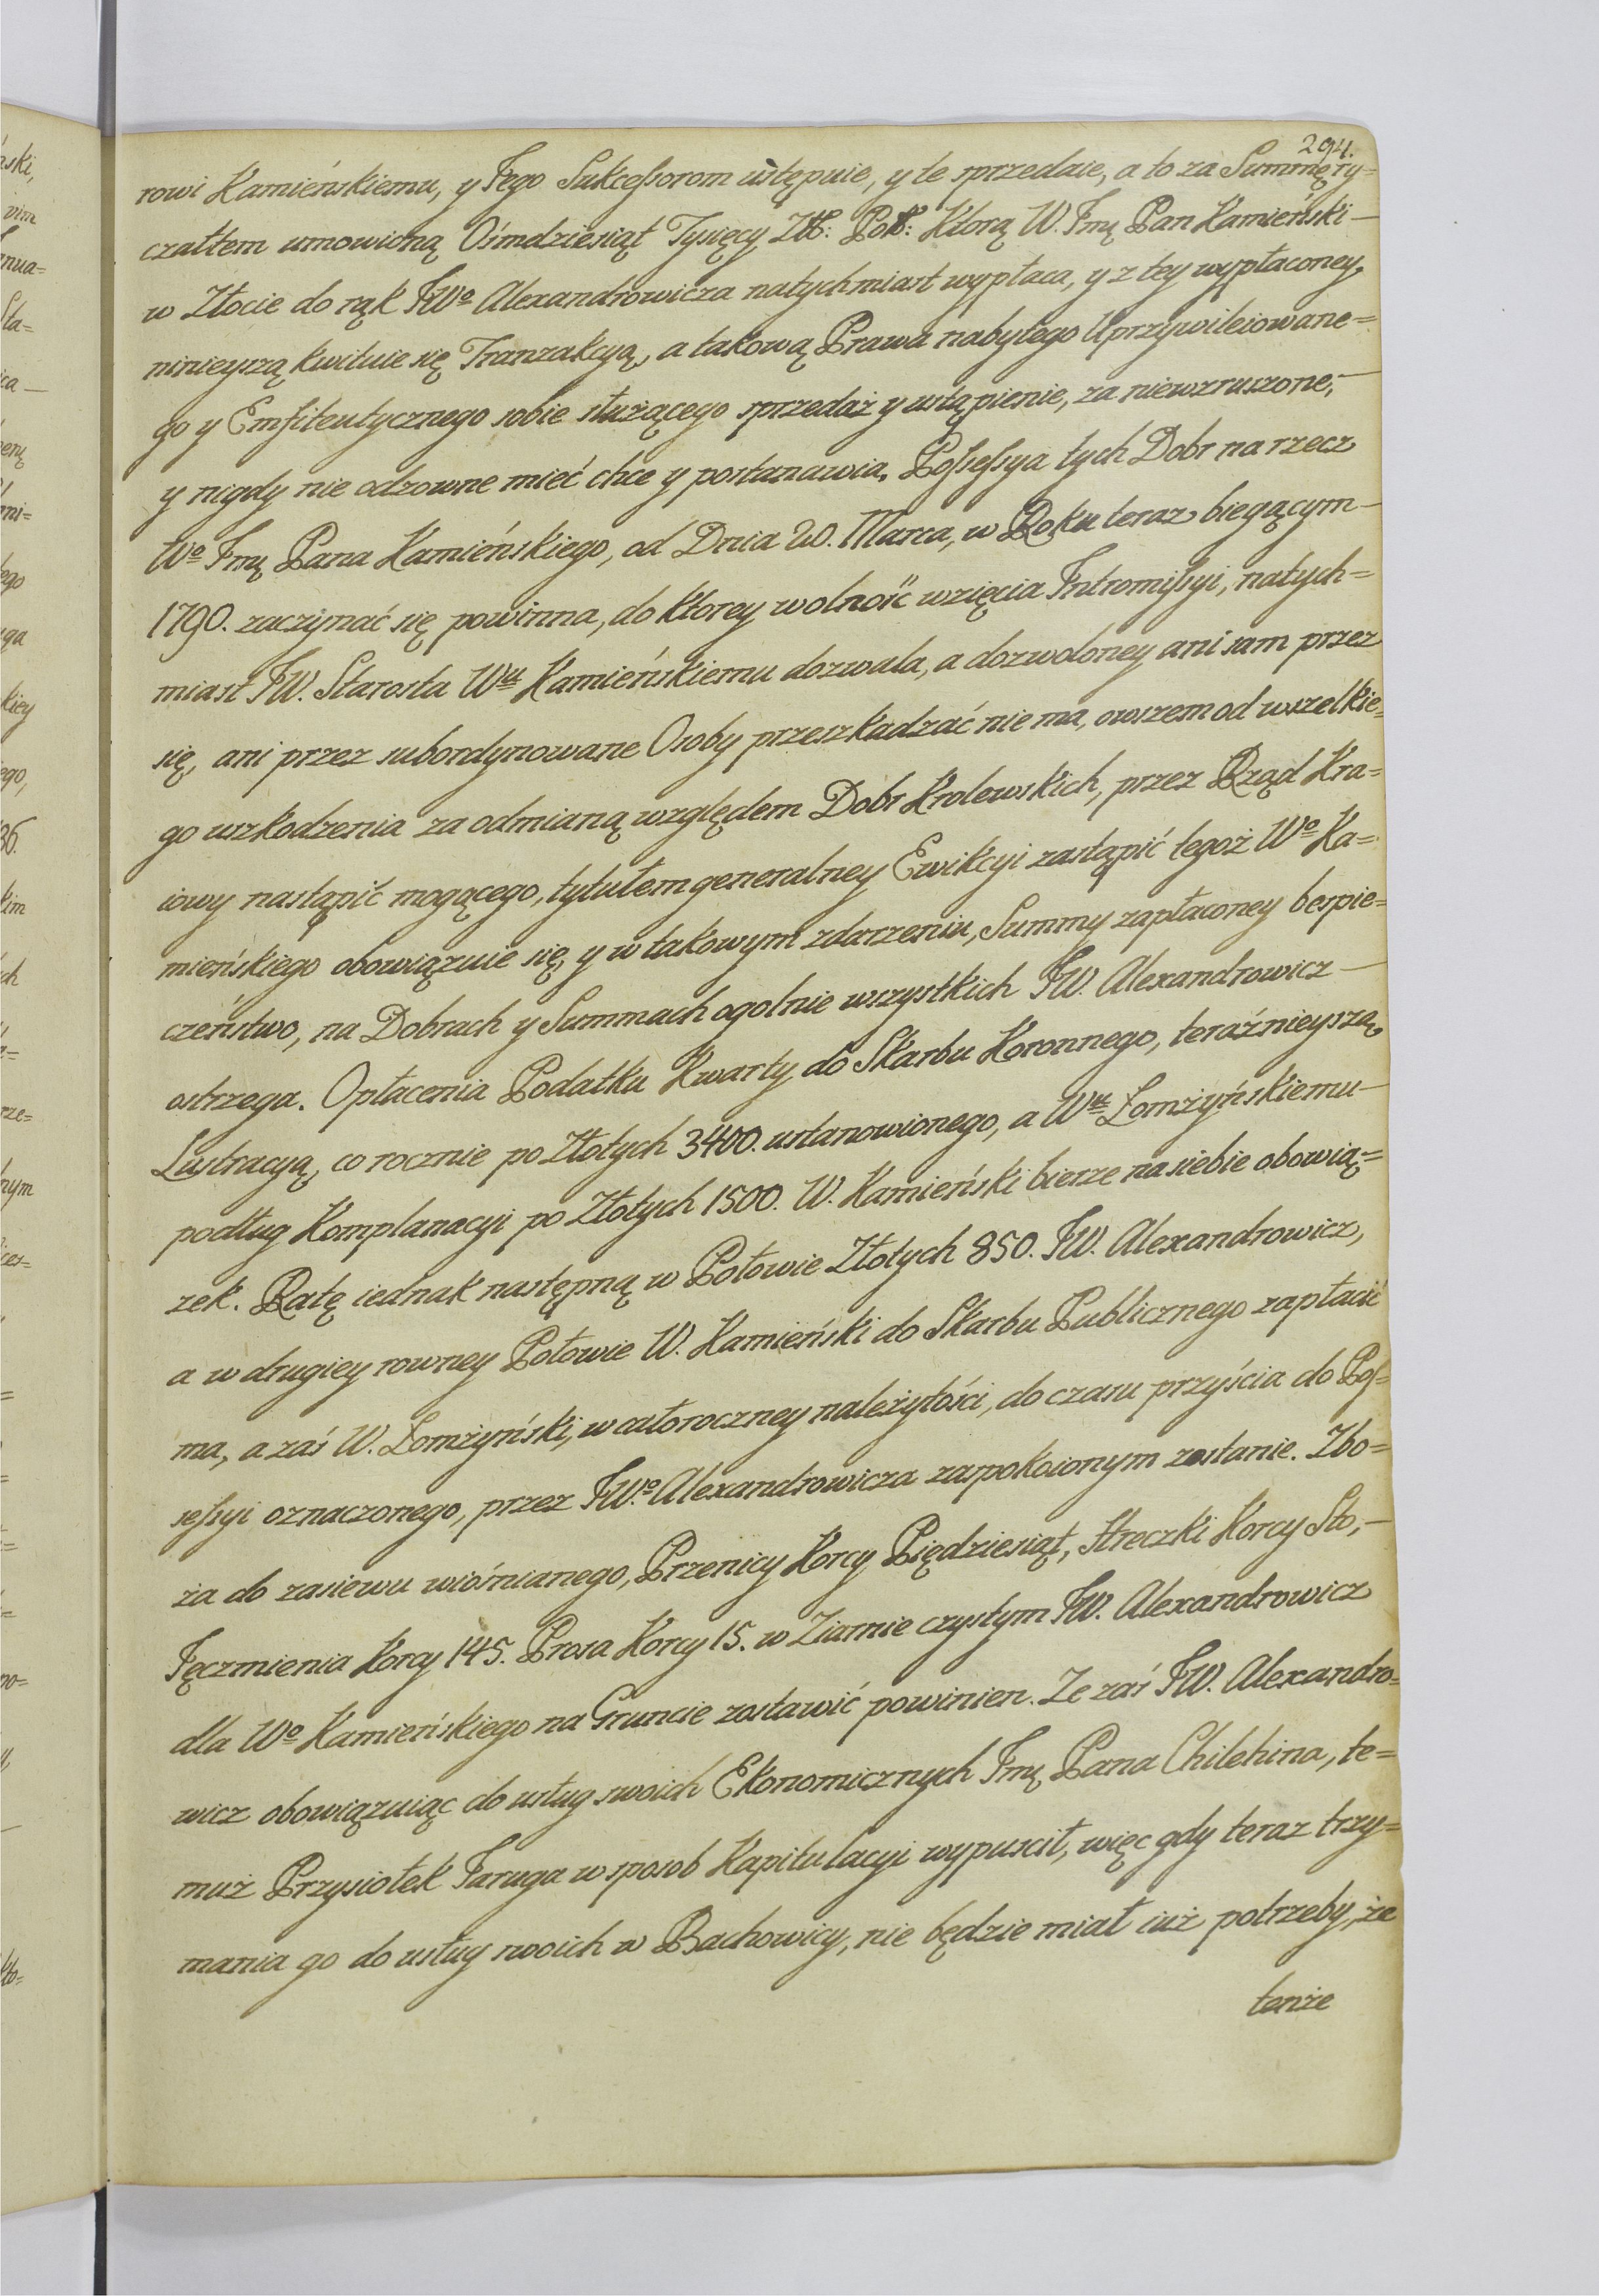 294.
rowi Kamieńskiemu, y Jego Sukcessorom ustępuie, y te sprzedaie, a to za Summę ry=
czałtem umowioną Ośmdziesiąt Tysięcy Złł: Polł: Którą W. Jmę Pan Kamieński —
w Złocie do rąk JWo Alexandrowicza natychmiast wypłaca, y z tey wypłaconey,
ninieyszą kwituie się Tranzakcyą, a takową Prawa nabytego Uprzywileiowane=
go y Emfiteutycznego sobie służącego sprzedaż y ustąpienie, za niewzruszone, —
y nigdy nie odzowne mieć chce y postanawia. Possessya tych Dobr na rzecz
Wo Jmę Pana Kamieńskiego, od Dnia 20. Marca, w Roku teraz biegącym —
1790. zaczynać się powinna, do ktorey wolność wzięcia Intromissyi, natych=
miast JW. Starosta Wu Kamieńskiemu dozwala, a dozwoloney ani sam przez
się, ani przez subordynowane Osoby przeszkadzać nie ma, owszem od wszelkie=
go uszkodzenia za odmianą względem Dobr Krolewskich, przez Rząd Kra=
iowy nastąpić mogącego, tytułem generalney Ewikcyi zastąpić tegoż Wo Ka=
mieńskiego obowiązuie się, y w takowym zdarzeniu, Summy zapłaconey bespie=
czeństwo, na Dobrach y Summach ogolnie wszystkich JW. Alexandrowicz —
ostrzega. Opłacenia Podatku Kwarty do Skarbu Koronnego, teraźnieyszą
Lustracyą, co rocznie po Złotych 3400. ustanowionego, a Wu Łomżyńskiemu —
podług Komplanacyi po Złotych 1500. W. Kamieński bierze na siebie obowią=
zek. Ratę iednak następną w Połowie Złotych 850. JW. Alexandrowicz,
a w drugiey rowney Połowie W. Kamieński do Skarbu Publicznego zapłacić
ma, a zaś W. Łomżyński, w całoroczney należytości, do czasu przyścia do Pos=
sessyi oznaczonego, przez JWo Alexandrowicza zaspokoionym zostanie. Zbo=
ża do zasiewu wiośnianego, Przenicy Korcy Piędziesiąt, Hreczki Korcy Sto, —
Jęczmienia Korcy 145. Prosa Korcy 15. w Ziarnie czystym JW. Alexandrowicz
dla Wo Kamieńskiego na Gruncie zostawić powinien. Ze zaś JW. Alexandro=
wicz obowiązuiąc do usług swoich Ekonomicznych Jmę Pana Chilehina, te=
muż Przysiołek Jaruga w sposob Kapitulacyi wypuscił, więc gdy teraz trzy=
mania go do usług swoich w Bachowicy, nie będzie miał iuż potrzeby, że
tenże